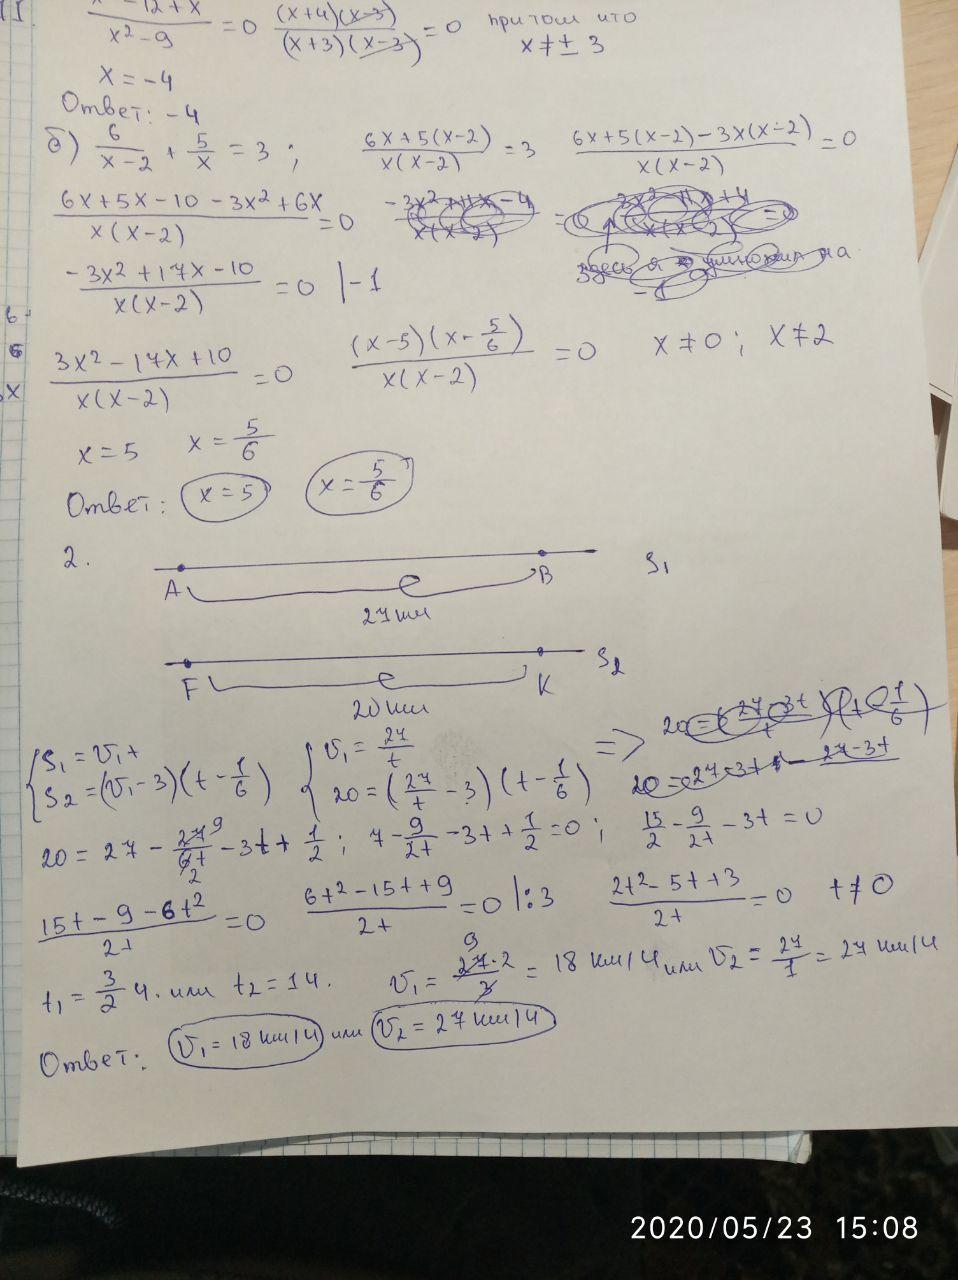 x² - 12 + x / x² - 9 = 0 (x+4)(x-3) / (x+3)(x-3) = 0 при том что x ≠ ± 3
x = -4
Ответ: -4
б) 6/(x-2) + 5/x = 3 ; 6x+5(x-2) / x(x-2) = 3 6x+5(x-2)-3x(x-2) / x(x-2) = 0
6x+5x-10-3x²+6x / x(x-2) = 0 -3x²+11x-4 / x(x-2) = 0 3x²-11x+4 / x(x-2) = 0
здесь я умножил на -1
-3x²+17x-10 / x(x-2) = 0 |-1
3x²-17x+10 / x(x-2) = 0 (x-5)(x-5/6) / x(x-2) = 0 x ≠ 0 ; x ≠ 2
x = 5 x = 5/6
Ответ: x = 5 x = 5/6
2.
A B S₁
27км
F K S₂
20км
{ S₁ = V₁t { V₁ = 27/t => 20 = (27-3t / t)(t - 1/6)
S₂ = (V₁-3)(t - 1/6) 20 = (27/t - 3)(t - 1/6) 20 = 27-3t - 27-3t
20 = 27 - 27 9/6t 2 - 3t + 1/2 ; 7 - 9/2t - 3t + 1/2 = 0 ; 15/2 - 9/2t - 3t = 0
15t-9-6t² / 2t = 0 6t²-15t+9 / 2t = 0 |:3 2t²-5t+3 / 2t = 0 t ≠ 0
t₁ = 3/2 ч. или t₂ = 1ч. V₁ = 9 27·2/3 = 18 км/ч или V₂ = 27/1 = 27 км/ч
Ответ: V₁ = 18 км/ч или V₂ = 27 км/ч
2020/05/23 15:08